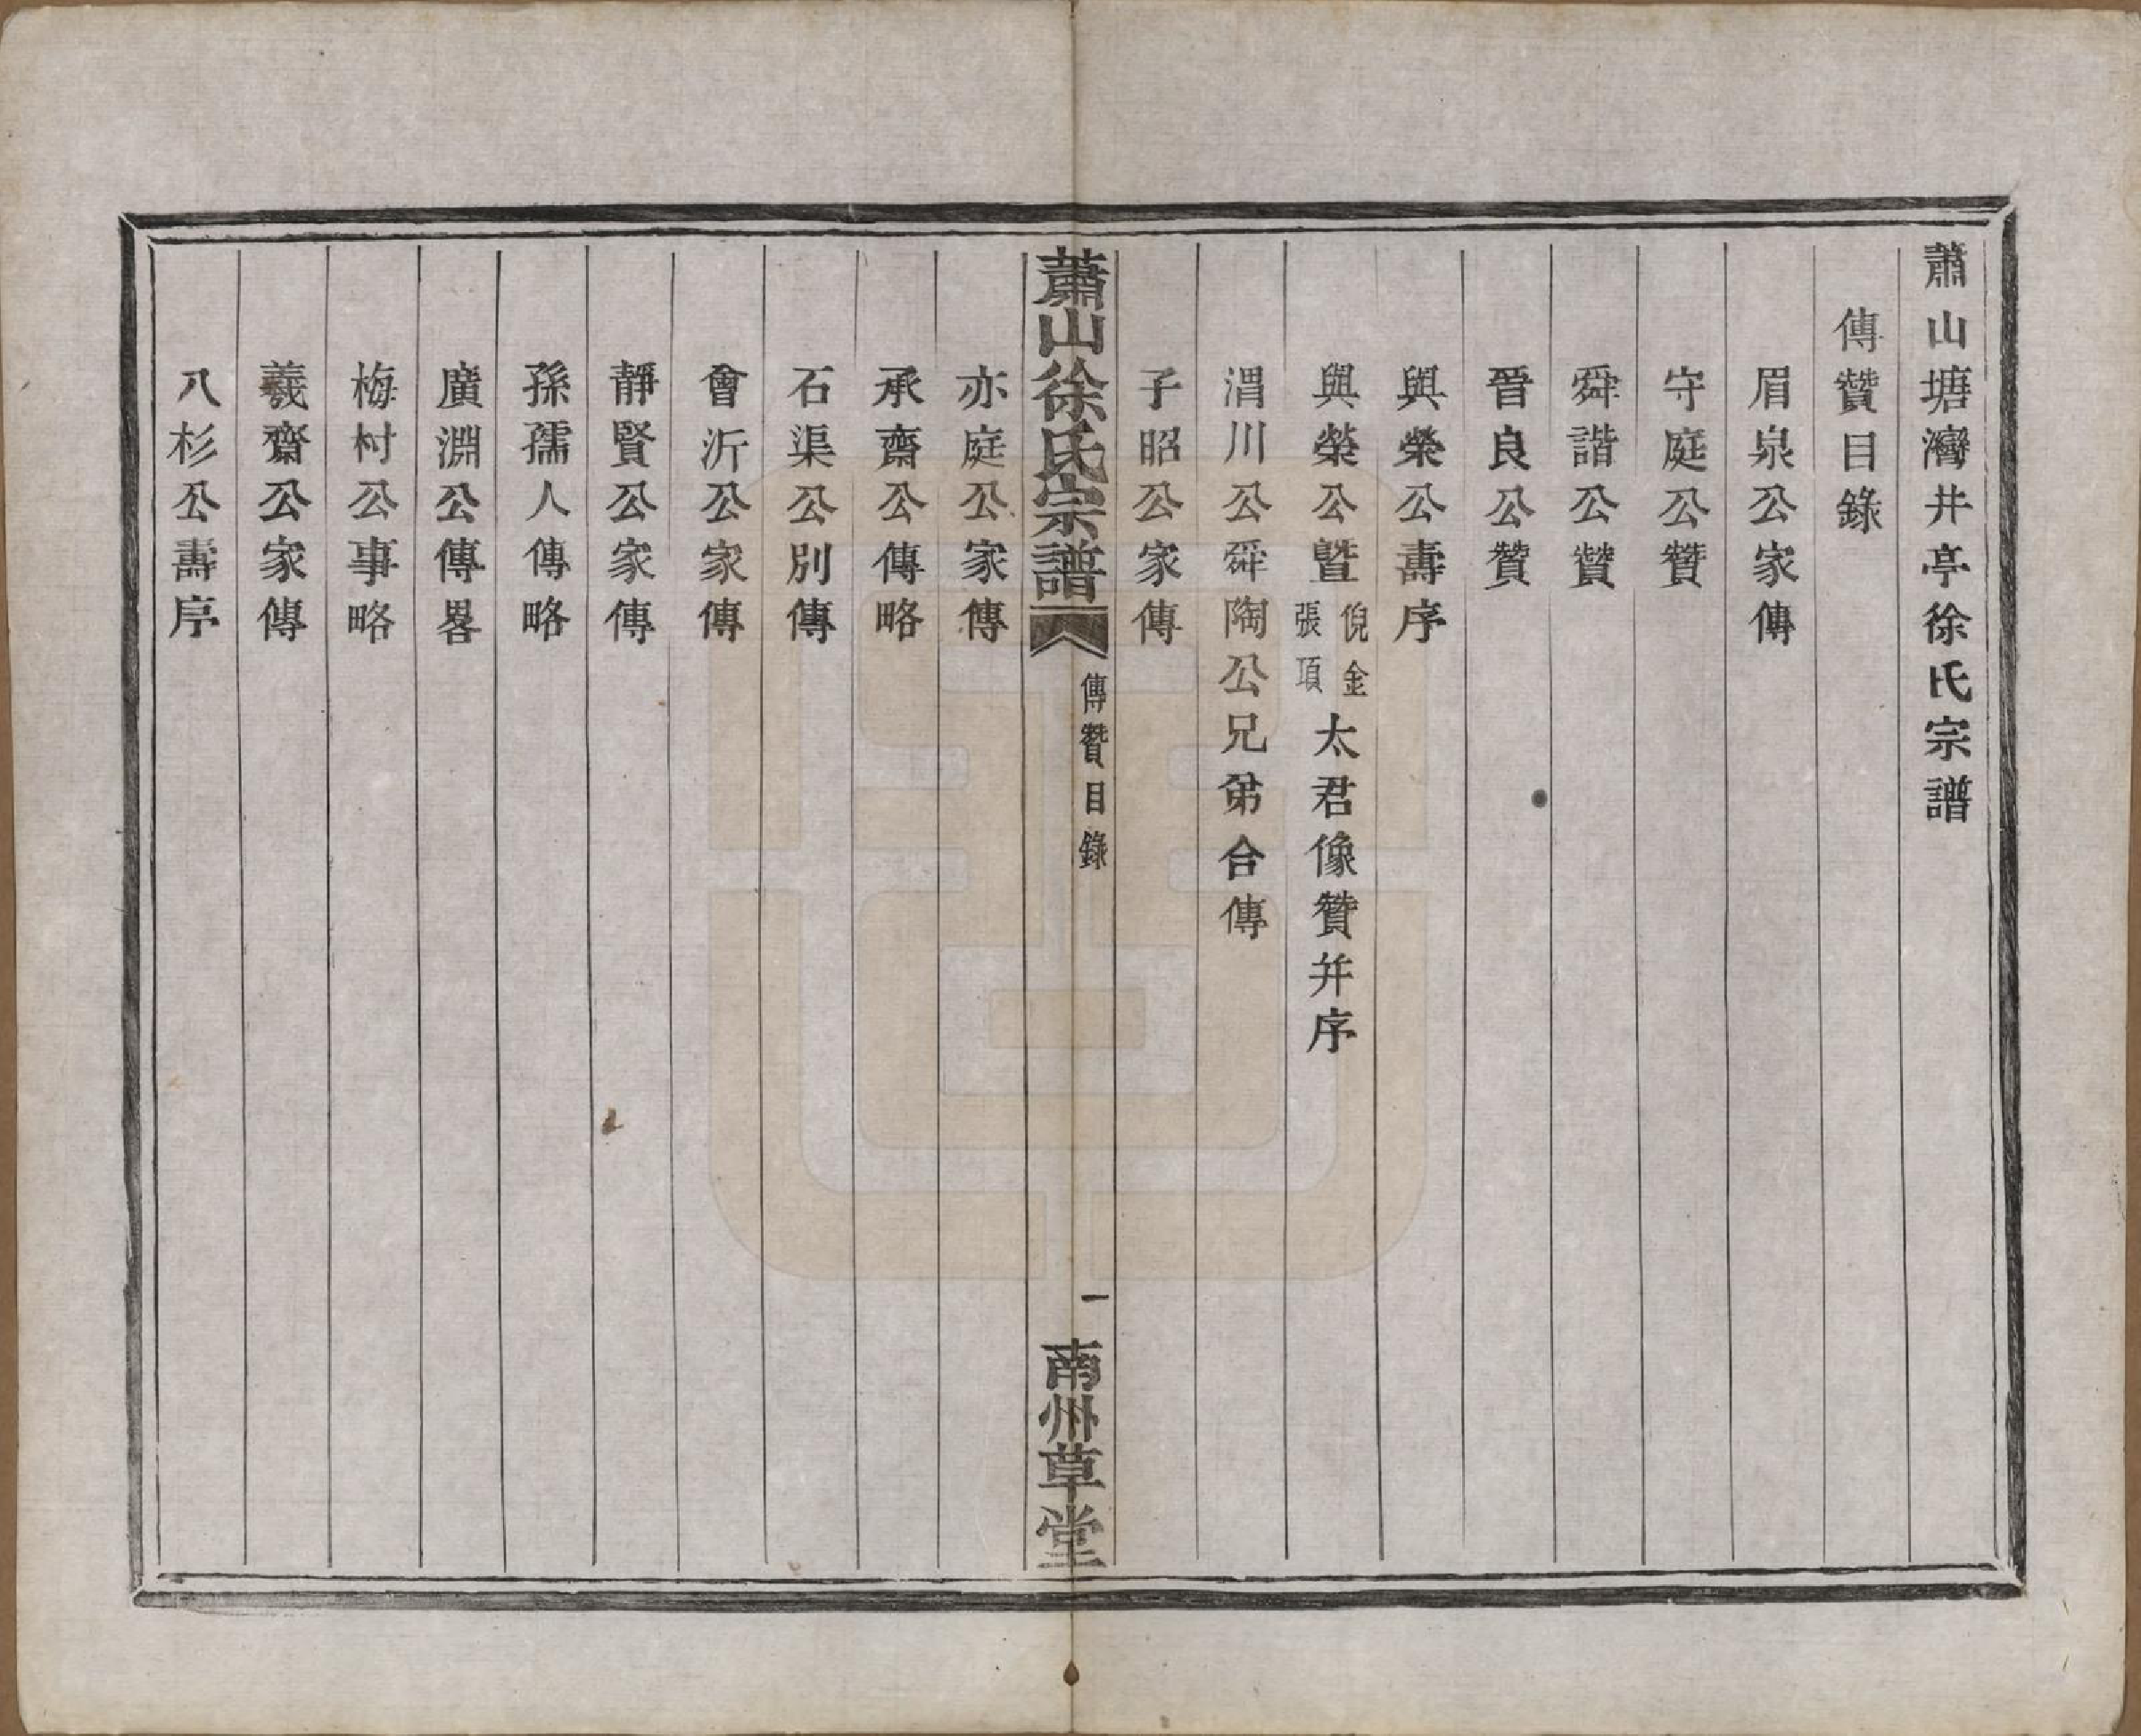 蕭山塘灣井亭徐氏宗譜
傳贊目錄
眉泉公家傳
守庭公贊
舜諧公贊
晉良公贊
與榮公壽序
與榮公曁倪金張項太君像贊并序
渭川公舜陶公兄弟合傳
子昭公家傳
蕭山徐氏宗譜 傳贊目錄 一 南州草堂
亦庭公家傳
承齋公傳略
石渠公別傳
會沂公家傳
靜賢公家傳
孫孺人傳略
廣淵公傳畧
梅村公事略
羲齋公家傳
八杉公壽序